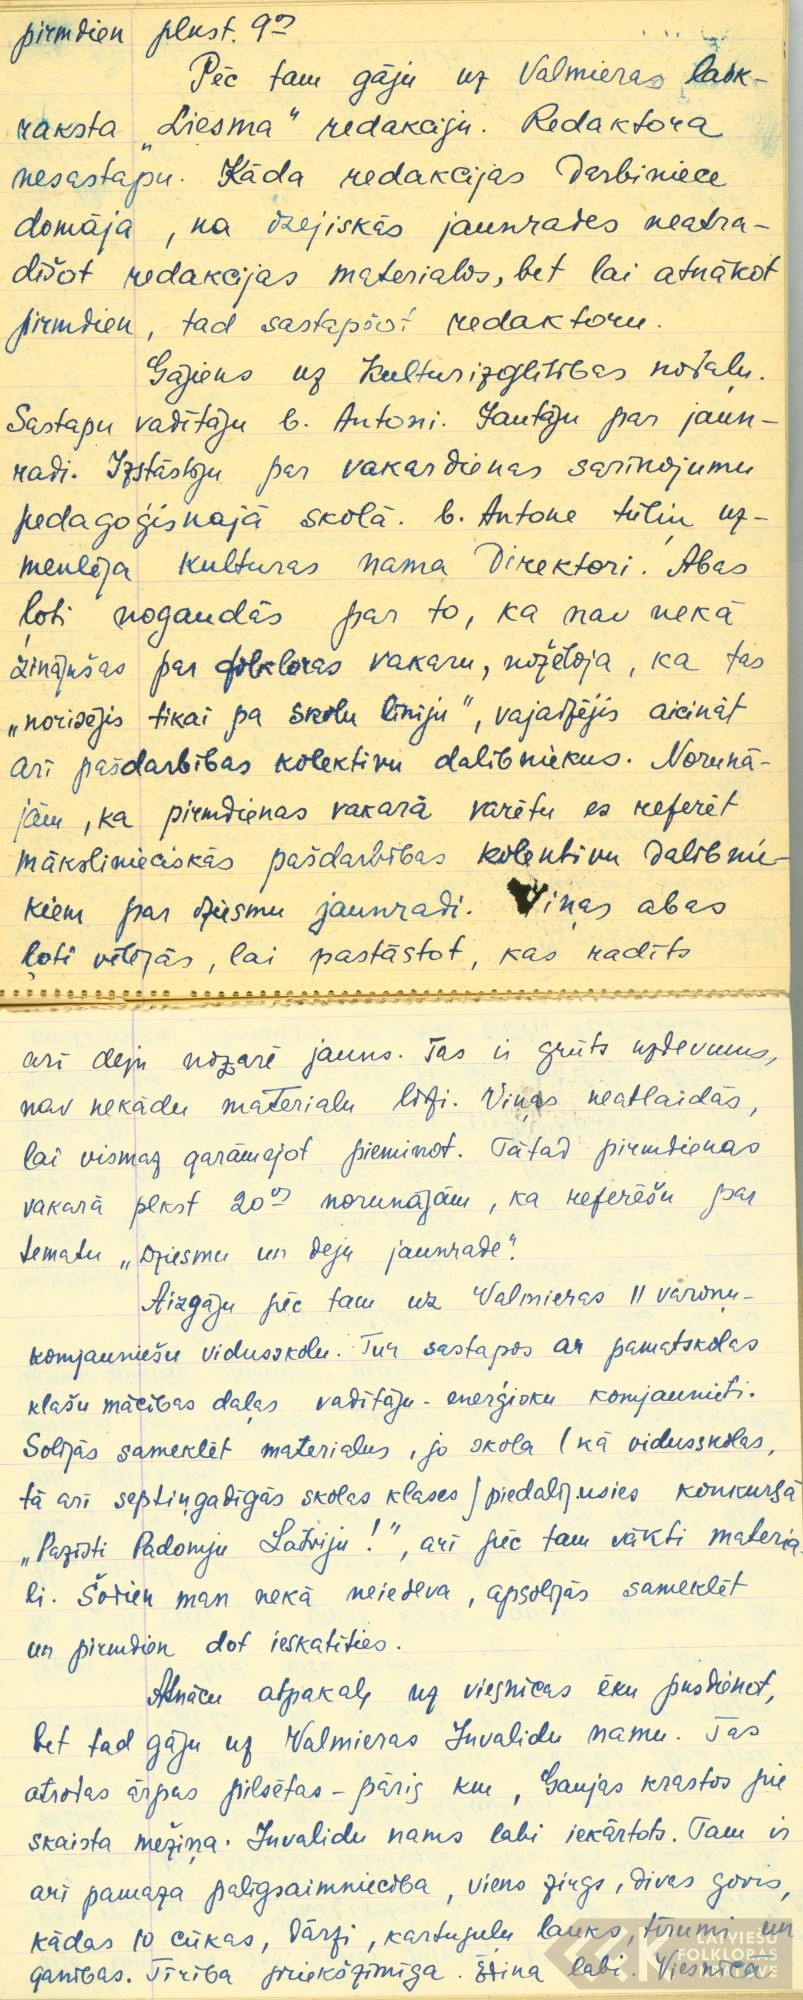 pirmdien plkst. 9⁰⁰
Pēc tam gāju uz Valmieras laik-
raksta „Liesma" redakciju. Redaktora
nesastapu. Kāda redakcijas darbiniece
domāja, ka dzejiskās jaunrades neatra-
dīšot redakcijas materialos, bet lai atnākot
pirmdien, tad sastapšot redaktoru.
Gājiens uz Kulturizglītības nodaļu.
Sastapu vadītāju b. Antoni. Jautāju par jaun-
radi. Izstāstīju par vakardienas sarīkojumu
pedagoģiskajā skolā. b. Antone tūliņ uz-
meklēja kulturas nama direktori. Abas
ļoti nogaudās par to, ka nav nekā
zinājušas par folkloras vakaru, nožēloja, ka tas
„noricējis tikai pa skolu līniju", vajadzējis aicināt
arī pašdarbības kolektivu dalībniekus. Norunā-
jām, ka pirmdienas vakarā varētu es referēt
mākslinieciskās pašdarbības kolektivu dalībnie-
kiem par dziesmu jaunradi. Viņas abas
ļoti vēlējās, lai pastāstot, kas radīts
arī deju nozarē jauns. Tas ir grūts uzdevums,
nav nekādu materialu līdzi. Viņas neatlaidās,
lai vismaz garāmejot pieminot. Tātad pirmdienas
vakarā plkst 20⁰⁰ norunājām, ka referēšu par
tematu „Dziesmu un deju jaunrade".
Aizgāju pēc tam uz Valmieras 11 varoņu-
komjauniešu vidusskolu. Tur sastapos ar pamatskolas
klašu mācības daļas vadītāju - enerģisku komjaunieti.
Solījās sameklēt materialus, jo skola (kā vidusskolas,
tā arī septiņgadīgās skolas klases) piedalījusies konkursā
„Pazīsti Padomju Latviju!", arī pēc tam vākti materia-
li. Šodien man nekā neiedeva, apsolījās sameklēt
un pirmdien dot ieskatīties.
Atnācu atpakaļ uz viesnīcas ēku pusdienot,
bet tad gāju uz Valmieras Invalidu namu. Tas
atrodas ārpus pilsētas - pāris km, Gaujas krastos pie
skaista mežiņa. Invalidu nams labi iekārtots. Tam ir
arī pamaza palīgsaimniecība, viens zirgs, divas govis,
kādas 10 cūkas, dārzi, kartupeļu lauks, tīrumi un
ganības. Tīrība priekšzīmīga. Ēdina labi. Viesnīca
LATVIEŠU
FOLKLORAS
KRĀTUVE